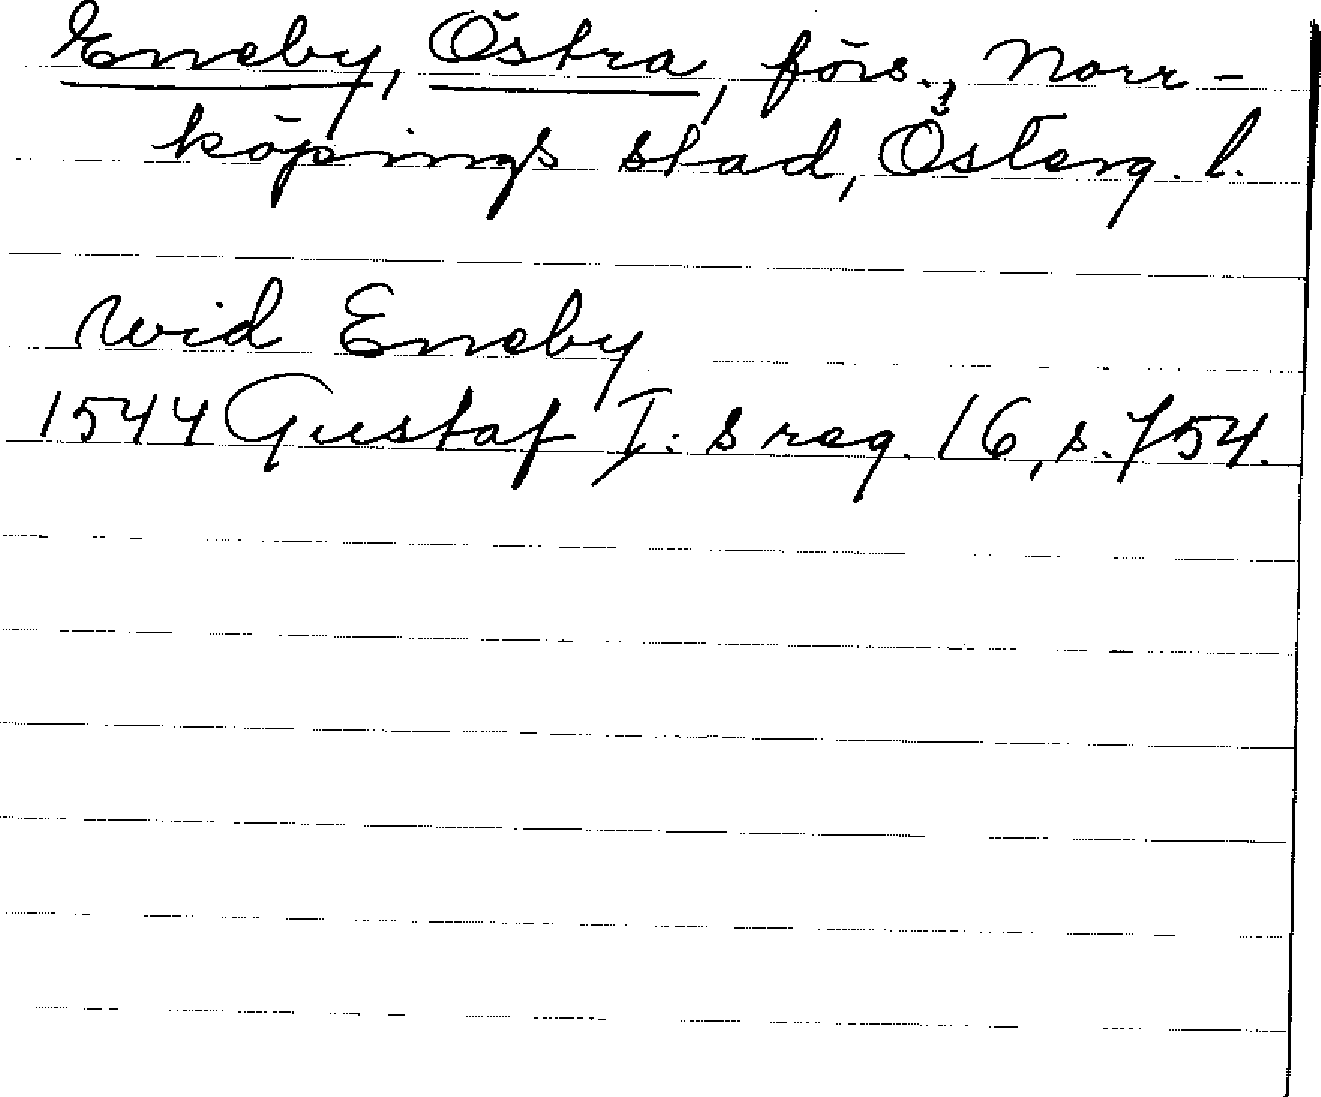 Eneby, Östra, förs., Norr-
köpings stad, Österg. l.
wid Eneby
1544 Gustaf I:s reg. 16, s. 754.